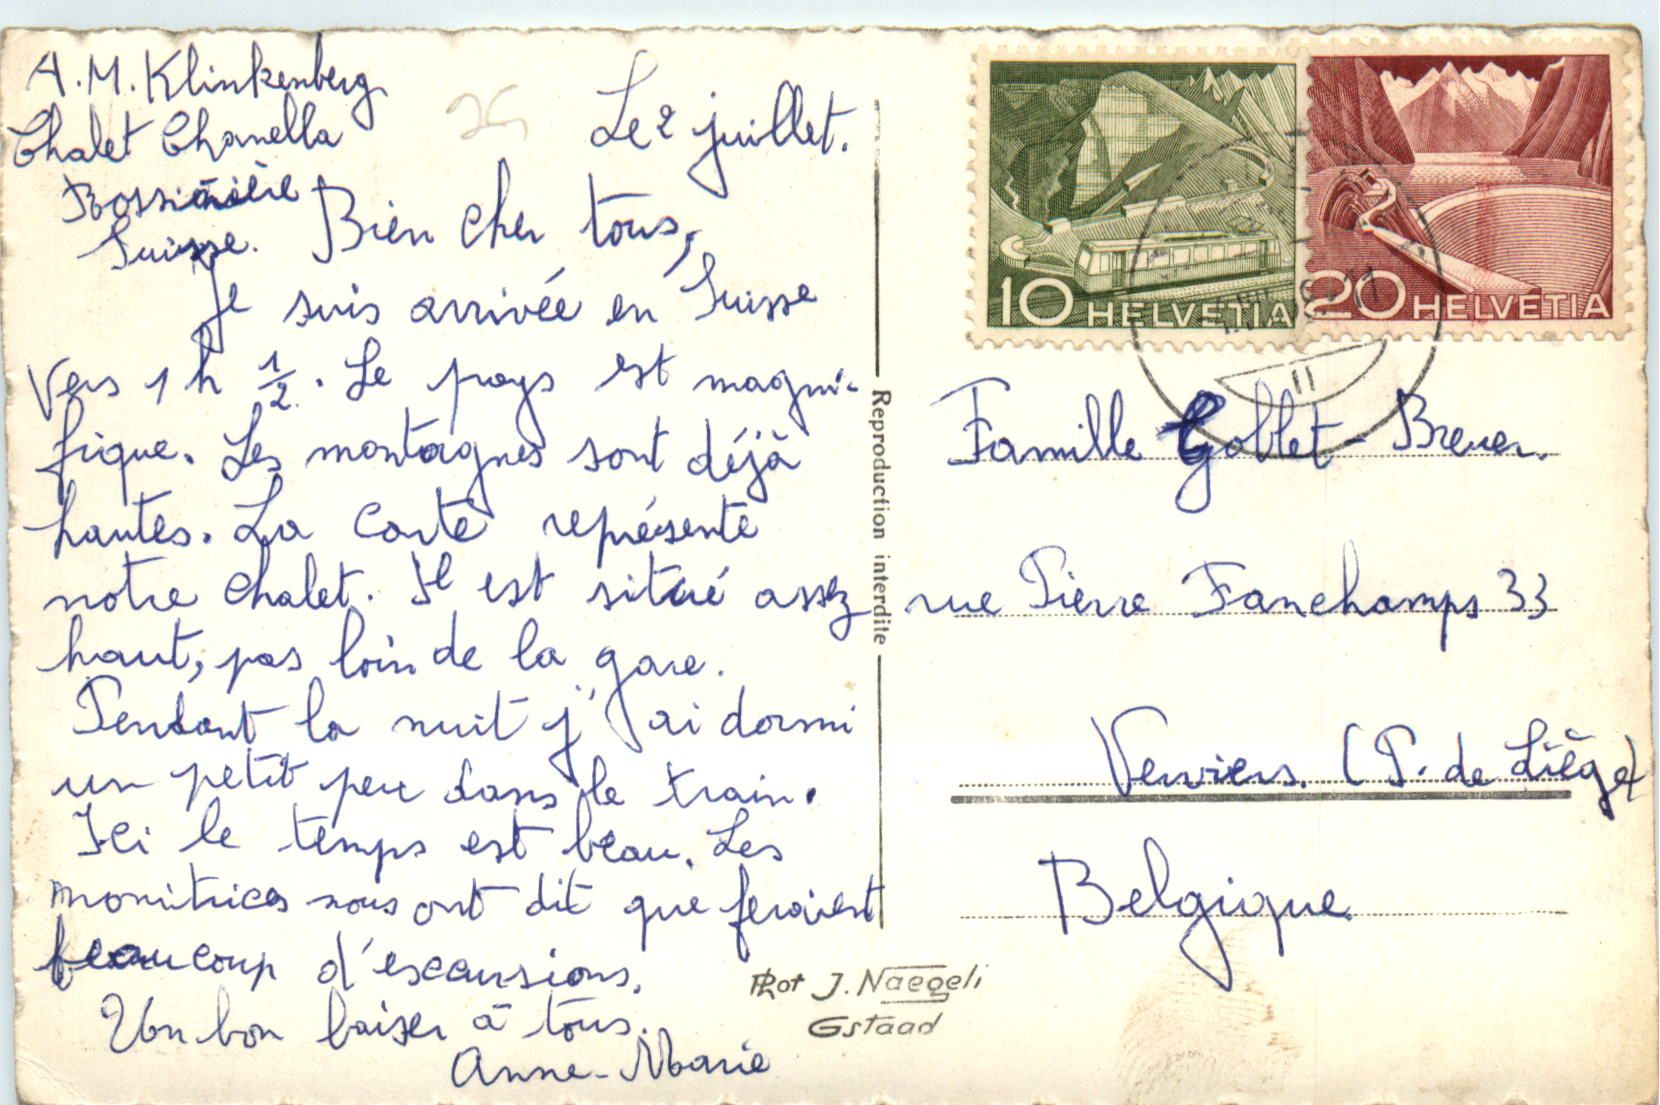 A. M. Klinkenberg
Chalet Chanella
Rossinière
Suisse.
25
Le 2 juillet.
Bien cher tous,
Je suis arrivée en Suisse
Vers 1 h 1/2. Le pays est magni-
fique. Les montagnes sont déjà
hautes. La carte représente
notre chalet. Il est situé assez
haut, pas loin de la gare.
Pendant la nuit j'ai dormi
un petit peu dans le train.
Ici le temps est beau. Les
monitrices nous ont dit que feraient
beaucoup d'excursions.
Un bon baiser à tous.
Anne-Marie
Reproduction interdite
Phot J. Naegeli
Gstaad
10 HELVETIA
20 HELVETIA
Famille Goblet-Breuer.
rue Pierre Fanchamps 33
Verviers. (P. de Liège)
Belgique